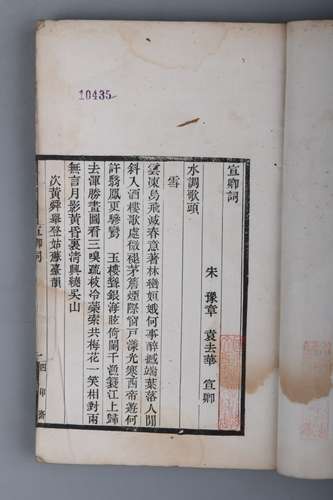 10435
宣卿詞
宋 豫章 袁去華 宣卿
水調歌頭
雪
雲凍鳥飛滅春意著林巒姮娥何事醉撼瑤葉落人間
斜入酒樓歌處微褪茅簷煙際窗戶漾光寒西帝遊何
許翳鳳更驂鸞 玉樓聳銀海眩倚闌干渺然江上歸
去渾勝畫圖看三嗅疏枝冷蕊索共梅花一笑相對兩
無言月影黃昏裏清興繞吳山
次黃舜舉登姑蘇臺韻
宣卿詞
一
四印齋